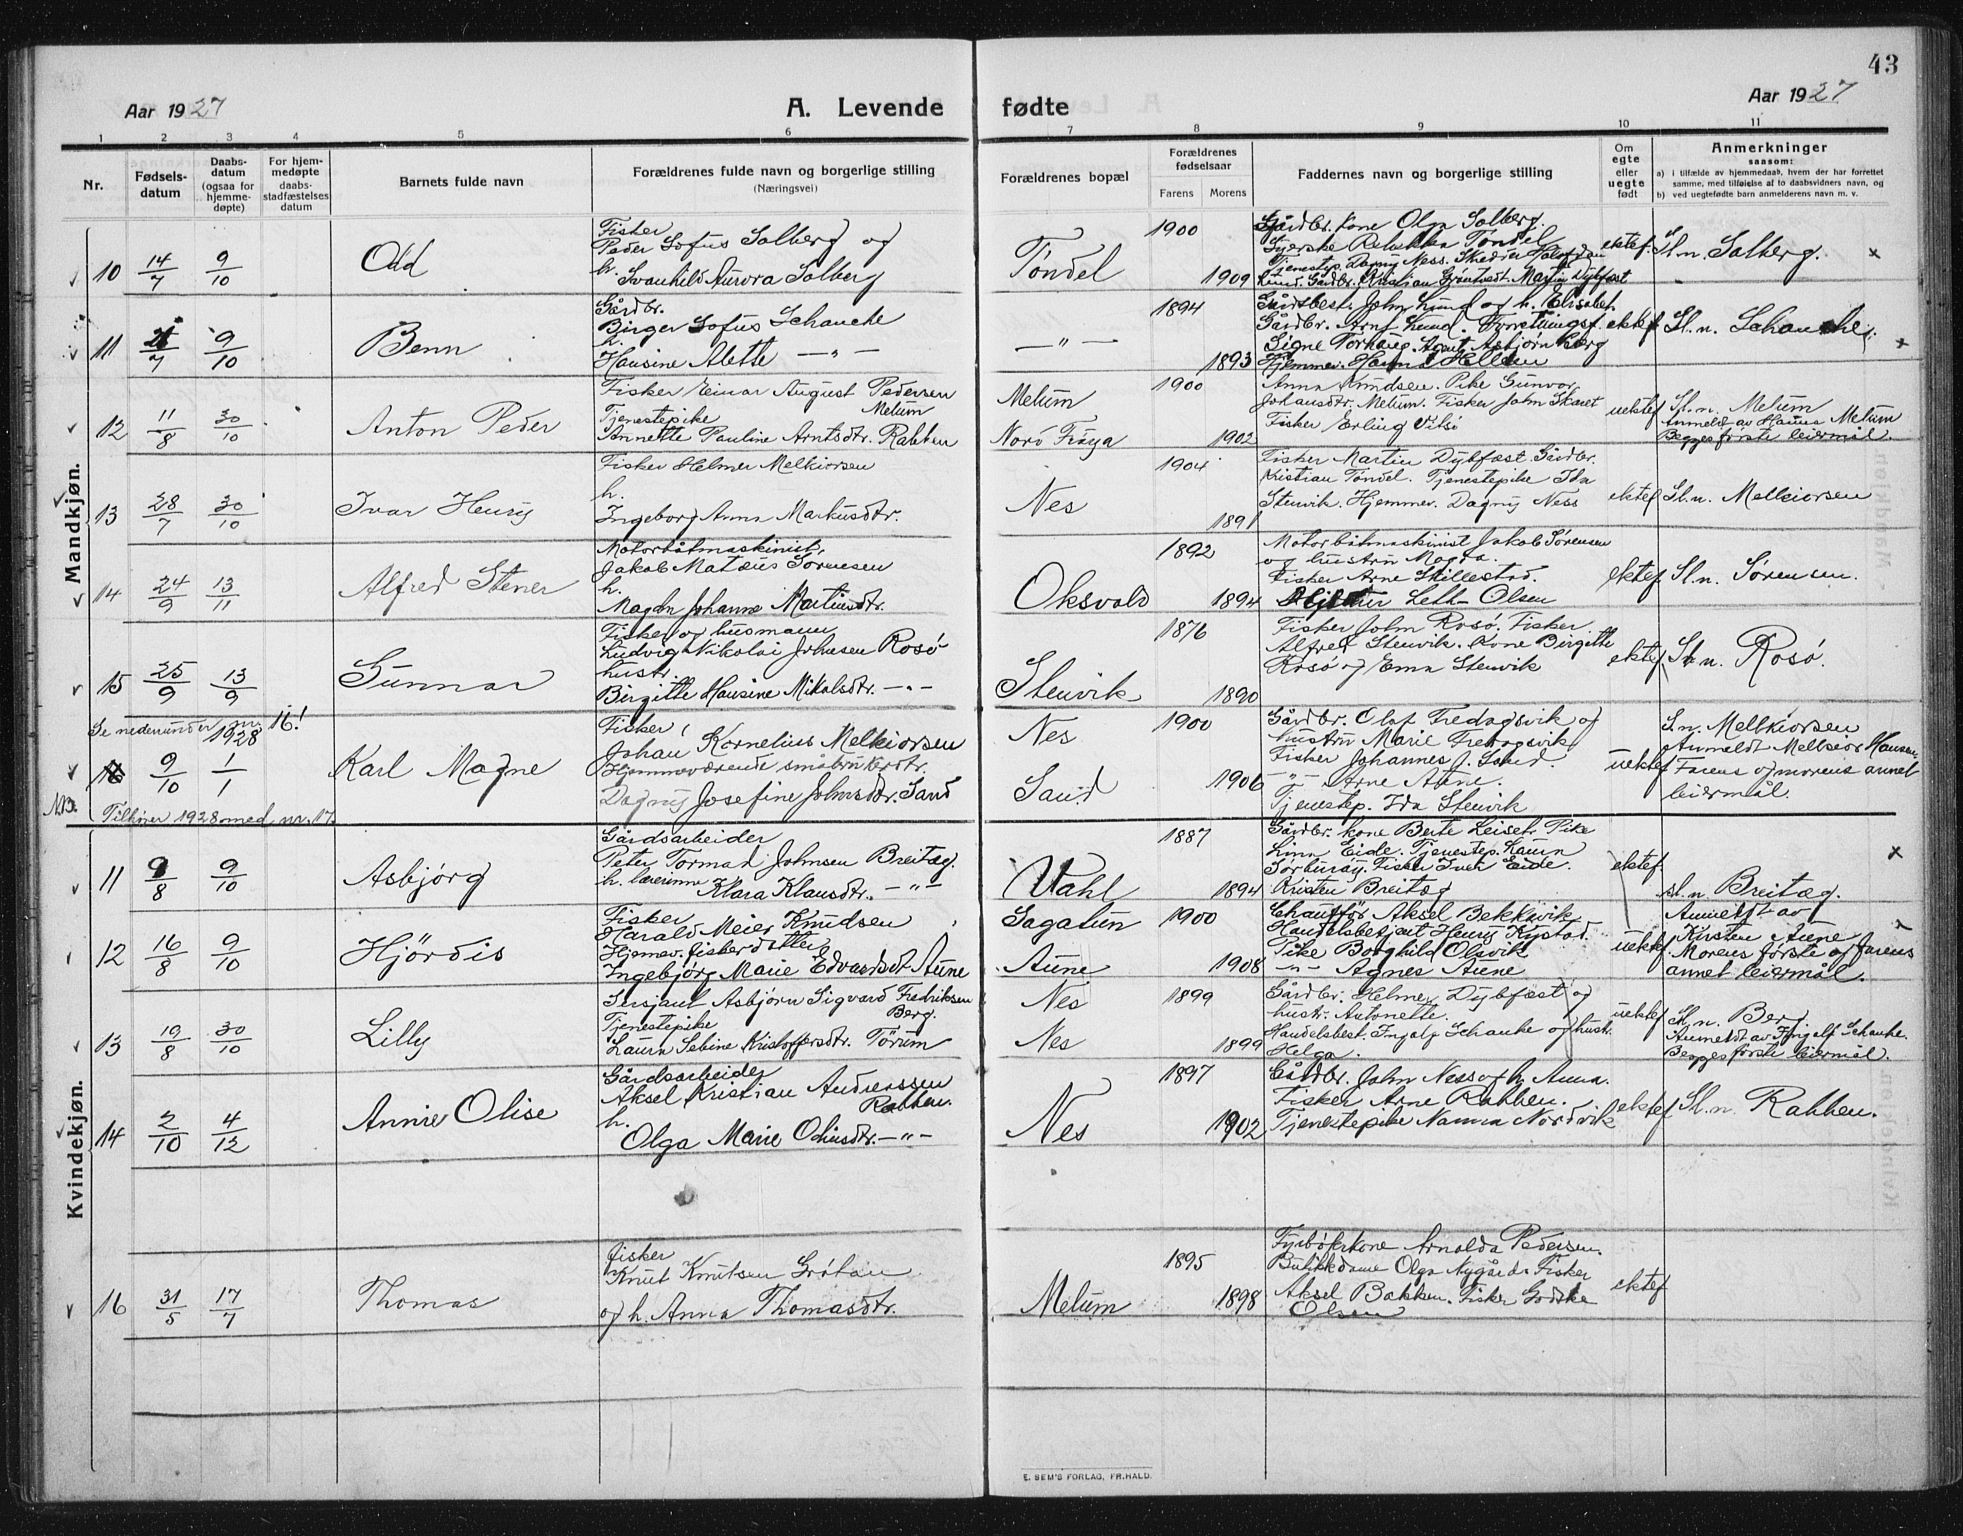 43
Aar 1927
A. Levende fødte
Aar 1927
1 2 3 4 5 6 7 8 9 10 11
Nr.
Fødsels-
datum
Daabs-
datum
(ogsaa for
hjemme-
døpte)
For hjem-
medøpte
daabs-
stadfæstelses
datum
Barnets fulde navn
Forældrenes fulde navn og borgerlige stilling
(Næringsvei)
Forældrenes bopæl
Forældrenes
fødselsaar
Farens Morens
Faddernes navn og borgerlige stilling
Om
egte
eller
uegte
født
Anmerkninger
saasom:
a) i tilfælde av hjemmedaab, hvem der har forrettet
samme, med tilføielse af to daabsvidners navn, og
b) ved uegtefødte barn anmelderens navn m. v.
Mandkjøn.
10 14/7 9/10 Odd
Fisker
Peder Sofus Solberg og
h. Svanhild Aurora Solberg
Tøndel
1900
1909
Gårdbr. kone Olga Solberg.
Syerske Rebekka Tøndel
Tjenestep. Dagny Ness.
Lund. Gårdbr. Kristian Martin Dybfest
ektef. Sl.n. Solberg. x
11 7 9/10 Benn
Gårdbr.
Birger Sofus Schanche
h.
Hansine Alette —"—
—"—
1894
1893
Gårdbest. John Lund og h. Elisabet.
Gårdbr. Arnt Lund.
Signe Agent Asbjørn Berg
Hjemmev.
ektef. Sl.n. Schanche. x
12 11/8 30/10 Anton Peder
Fisker Einar August Pedersen
Melum
Tjenestepike
Annette Pauline Arntsdtr. Rabben
Melum
Nord Frøya
1900
1902
Anna Knudsen. Pike Gunvor
Johansdtr. Melum. Fisker John Skaret
Fisker Erling Vitsø
uektef. Sl.n. Melum
Anmeldt av Hans Melum
Begges første leiermål.
13 28/7 30/10 Ivar Henry
Fisker Helmer Melkiorsen
h.
Ingeborg Anna Markusdtr.
Nes
1904
1891
Fisker Martin Dybfest. Gårdbr.
Kristian Tøndel. Tjenestepike Ida
Stenvik. Hjemmev. Dagny Ness
ektef. Sl.n. Melkiorsen
14 24/9 13/11 Alfred Stener
Motorbåtmaskinist,
Jakob Matæus Sørensen
h.
Magda Johanna Martinsdtr.
Oksvold
1892
1894
Motorbåtmaskinist Jakob Sørensen
og hustru Magda.
Fisker Arne Skillestad.
Olsen
ektef. Sl.n. Sørensen.
15 25/9 13/9 Gunnar
Fisker og husmann
Ludvig Nikolai Johnsen Rosø
hustr.
Birgitte Hansine Mikalsdtr. —"—
Stenvik
1876
1890
Fisker John Rosø. Fisker
Alfred Stenvik. Kone Birgitte
Rosø og Ema Stenvik
ektef. Sl.n. Rosø.
Se nedenunder nr. 16!
1928
16 9/10 1/1 Karl Magne
Fisker,
Johan Kornelius Melkiorsen
Hjemmeværende småbrukerdtr.
Dagny Josefine Johnsdtr. Sand
Nes
Sand
1900
1906
Gårdbr. Olaf Fredagsvik og
hustru Marie Fredagsvik
Fisker Johannes J. Sand.
—"— Arne Aune.
Tjenestep. Ida Stenvik
uektef. S.n. Melkiorsen
Anmeldt Melkior Hansen
Farens og morens annet
leiermål.
NB. Tilhører 1928 med nr. 17.
Kvindekjøn.
11 9/8 9/10 Asbjørg
Gårdsarbeider
Peter Tormod Johnsen Breitæg.
h. lærerinne Klara Klausdtr. —"—
Vahl
1887
1894
Gårdbr. kone Berte Leiset. Pike
Linn Eide. Tjenestep.
Fisker Eide.
Kristen Breitæg
ektef. Sl.n. Breitæg. x
12 16/8 9/10 Hjördis
Fisker
Harald Meier Knudsen
Hjemmev. fisker datter
Ingebjørg Marie Edvardsdt Aune
Sagatun
Aune
1900
1908
Chauffør Aksel Bekkvik
Handelsbetjent Henry Kystad.
Pike Borghild Olsvik
—"— Agnes Aune
uektef. Anmeldt av
Kirsten Aune
Morens første og farens
annet leiermål.
13 19/8 30/10 Lilly
Sersjant Asbjørn Sigvard Fredriksen
Berg.
Tjenestepike
Laura Sebine Kristoffersdtr. Tørum
Nes
Nes
1899
1899
Gårdbr. Helmer Dybfest og
hustr. Antonette.
Handelsbest. Ingolf Schanke og hustr.
Helga.
uektef. Sl.n. Berg
Anmeldt av Ingolf Schanke.
Begges første leiermål.
14 2/10 4/12 Annie Olise
Gårdsarbeider
Aksel Kristian Andreassen
Rabben.
h.
Olga Marie Odinsdtr. —"—
Nes
1897
1902
Gårdbr. John Ness og h. Anna.
Fisker Arne Rabben.
Tjenestepike Nanna Nordvik
ektef. Sl.n. Rabben.
16 31/5 17/7 Thomas
Fisker
Knut Knutsen Grøtan
og h. Anna Thomasdtr.
Melum
1895
1898
Fyrbøkrkone Arnolda Pedersen.
Butikkdame Olga Nygård. Fisker
Aksel Bakken. Fisker Godske
Olsen
ektef
E. SEM'S FORLAG, FR.HALD.